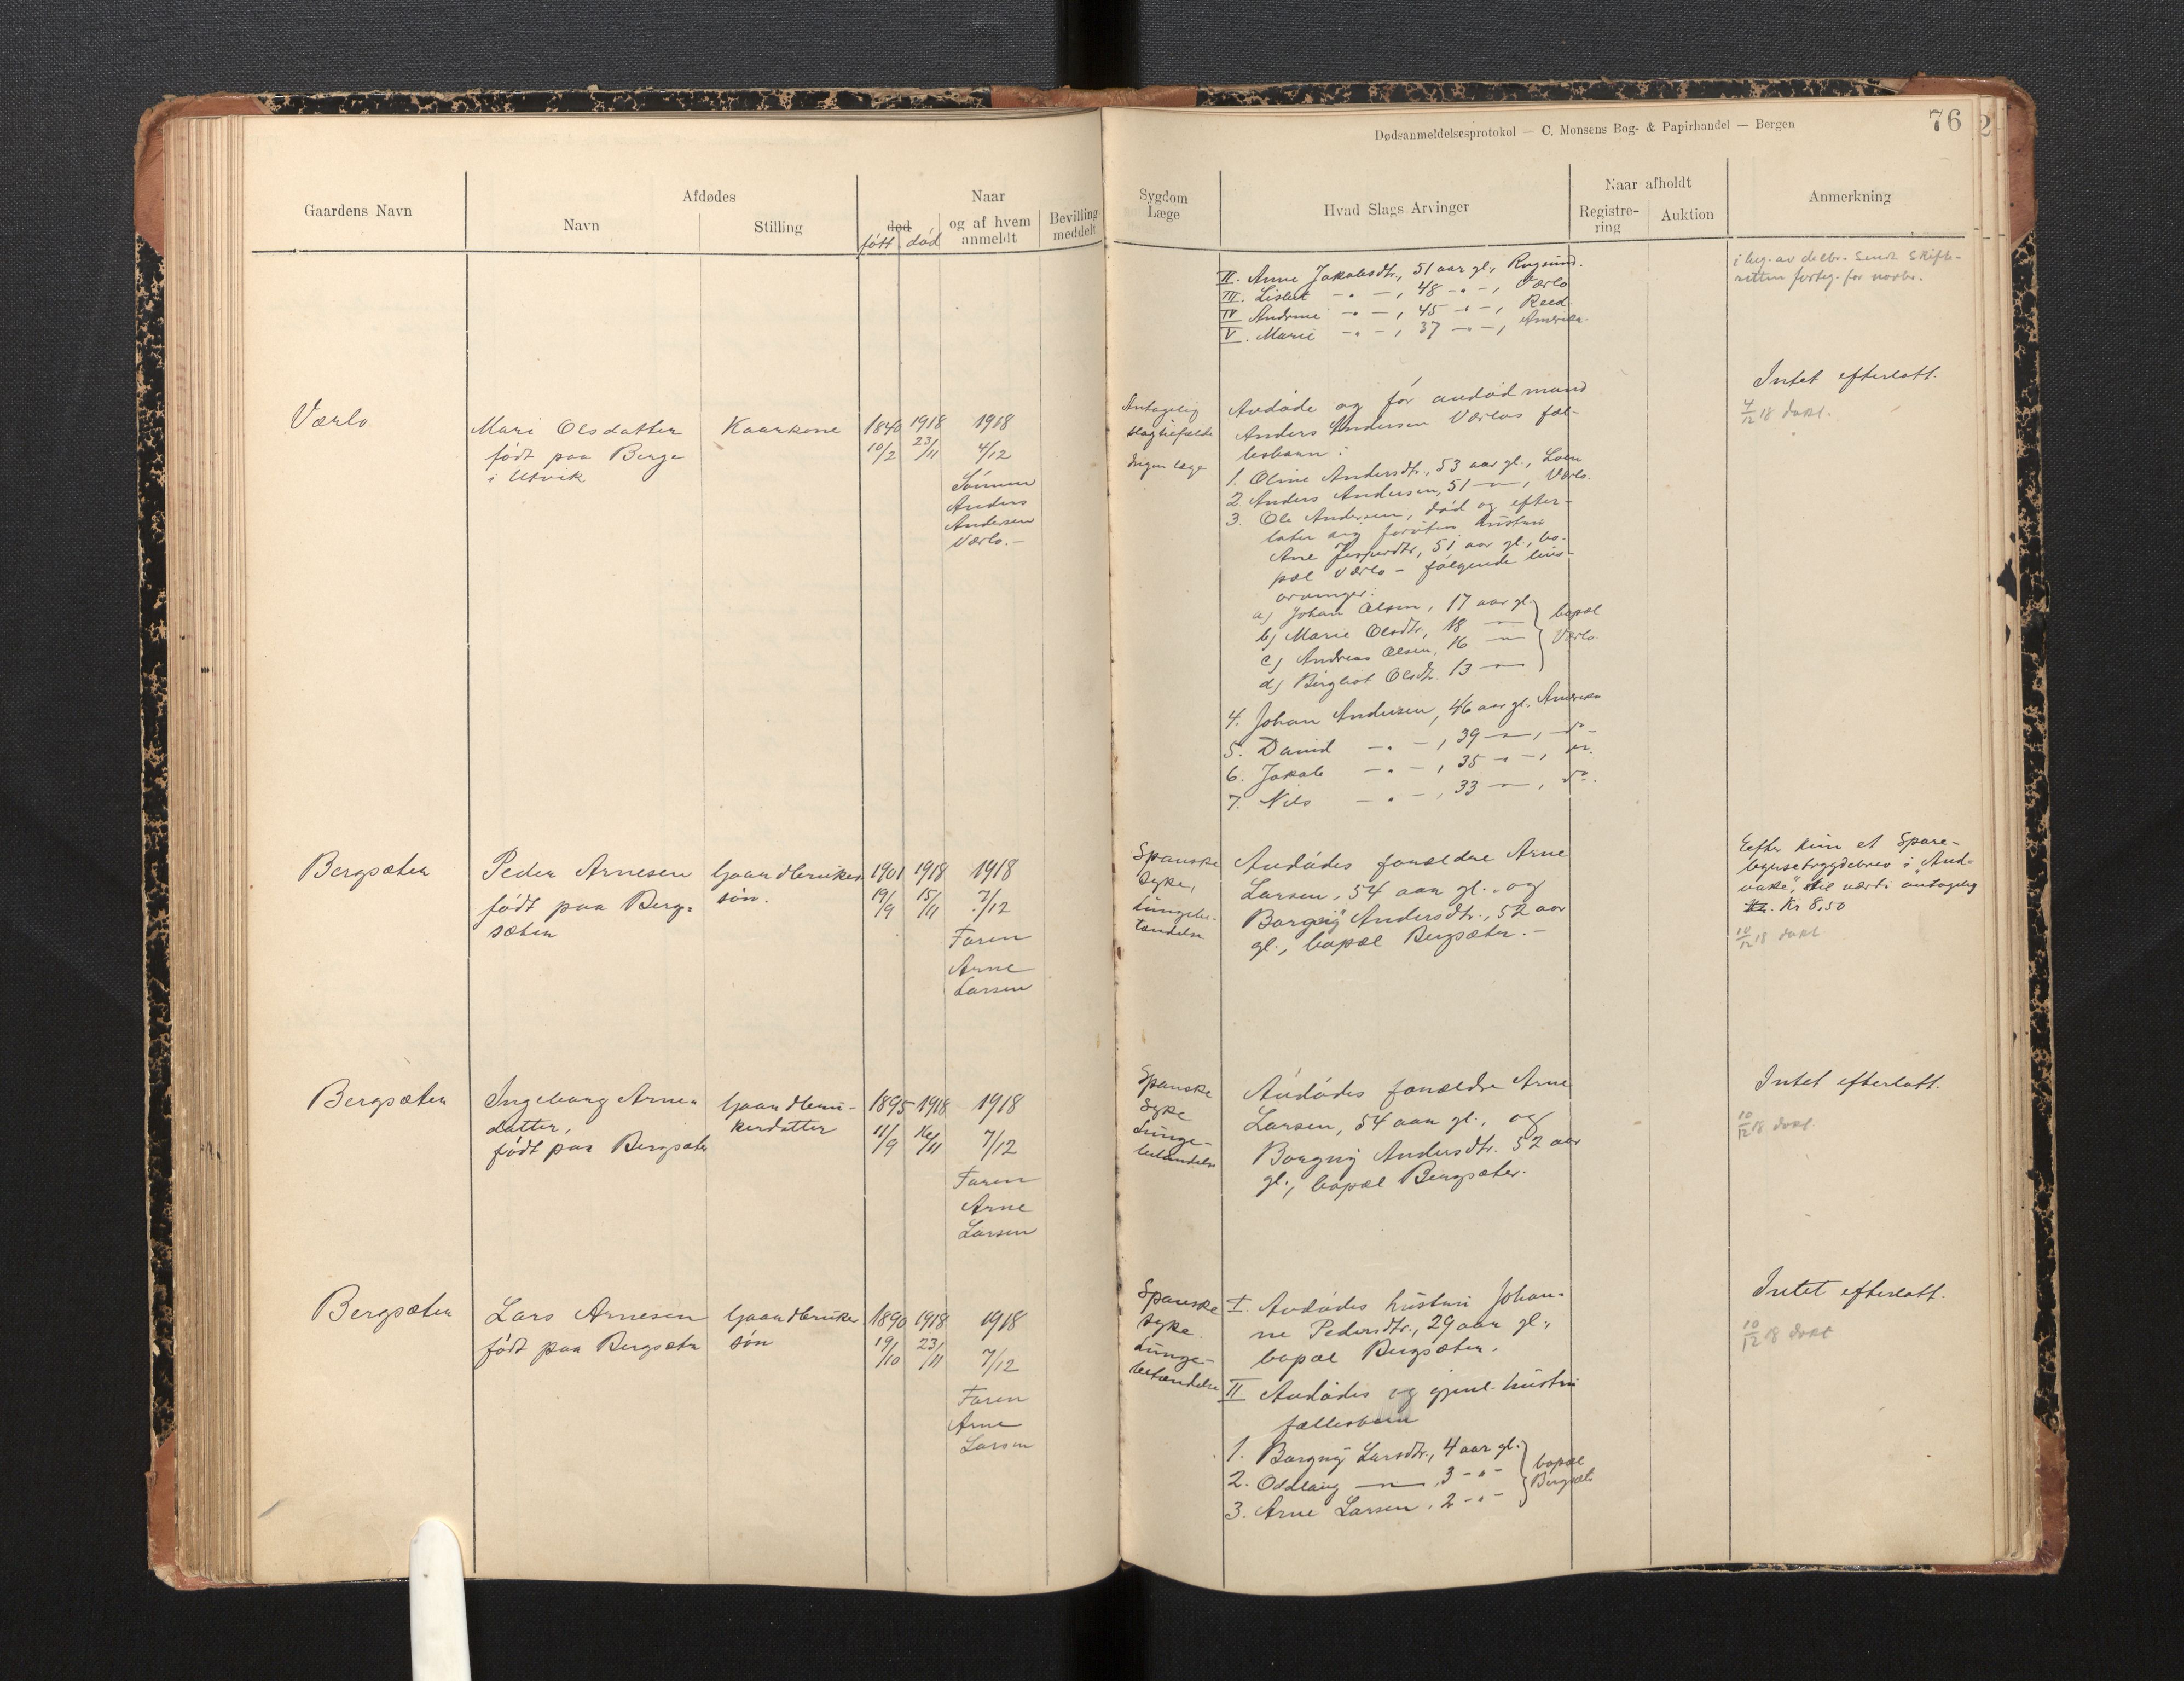 Dødsanmeldelsesprotokol — C. Monsens Bog- & Papirhandel — Bergen
76
2
Gaardens Navn
Afdødes
Navn
Stilling
død
født
død
Naar
og af hvem
anmeldt
Bevilling
meddelt
Sygdom
Læge
Hvad Slags Arvinger
Naar afholdt
Registre-
ring
Auktion
Anmerkning
II. Anne Jakobsdtr., 51 aar gl., Rugsund.
III. Lisbet —„—, 48 —„—, Værlo
IV Andrine —„—, 45 —„—, Reed
V. Marie —„—, 37 —„—, Amerika.
i beg. av decbr. sendt skifte-
retten forteg. for novbr.
Værlo
Mari Olsdatter
født paa Berge
i Utvik
Kaarkone
1840
10/2
1918
23/11
1918
4/12
Sönnen
Anders
Andersen
Værlo.—
Antagelig
slagtilfælde
Ingen læge
Avdøde og før avdød mand
Anders Andersen Værlos fæl-
lesbarn:
1. Oline Andersdtr., 53 aar gl., Loen
2. Anders Andersen, 51 —„—, Værlo.
3. Ole Andersen, död og efter-
later sig foruten hustru
Ane Jespersdtr, 51 aar gl., bo-
pæl Værlo — følgende livs-
arvinger:
a) Johan Olsen, 17 aar gl.
b) Marie Olsdtr., 18 —„—
c) Andreas Olsen, 16 —„—
d) Bergliot Olsdtr. 13 —„—
bopæl
Værlo.
4. Johan Andersen, 46 aar gl. Amerika
5. David —„—, 39 —„—, do
6. Jakob —„—, 35 —„—, do.
7. Nils —„—, 33 —„—, do.
Intet efterlatt.
4/12 18 dokt.
Bergsæter
Peder Arnesen
født paa Berg-
sæter
Gaardbruker-
søn.
1901
19/9
1918
15/11
1918
7/12
Faren
Arne
Larsen
Spanske
syke,
Lungebe-
tændelse
Avdødes forældre Arne
Larsen, 54 aar gl., og
Borgny Andersdtr., 52 aar
gl., bopæl Bergsæter.—
Efter ham et Spare-
bøssetrygdebrev i "And-
vake", til værdi antagelig
Kr. Kr 8,50
10/12 18 dokt.
Bergsæter
Ingeborg Arne-
datter,
født paa Bergsæter
Gaardbru-
kerdatter
1895
11/9
1918
16/11
1918
7/12
Faren
Arne
Larsen
Spanske
syke
Lunge-
betændelse
Avdødes forældre Arne
Larsen, 54 aar gl., og
Borgny Andersdtr. 52 aar
gl., bopæl Bergsæter.
Intet efterlatt.
10/12 18 dokt.
Bergsæter
Lars Arnesen
født paa Bergsæter
Gaardbruker
søn
1890
19/10
1918
23/11
1918
7/12
Faren
Arne
Larsen
Spanske
syke.
Lunge-
betændelse
I. Avdødes hustru Johan-
ne Pedersdtr., 29 aar gl.,
bopæl Bergsæter.
II Avdødes og gjenl. hustru
fællesbarn
1. Borgny Larsdtr., 4 aar gl.
2. Oddlaug —„—, 3 —„—
3. Arne Larsen, 2 —„—
bopæl
Bergsæter
Intet efterlatt.
10/12 18 dokt